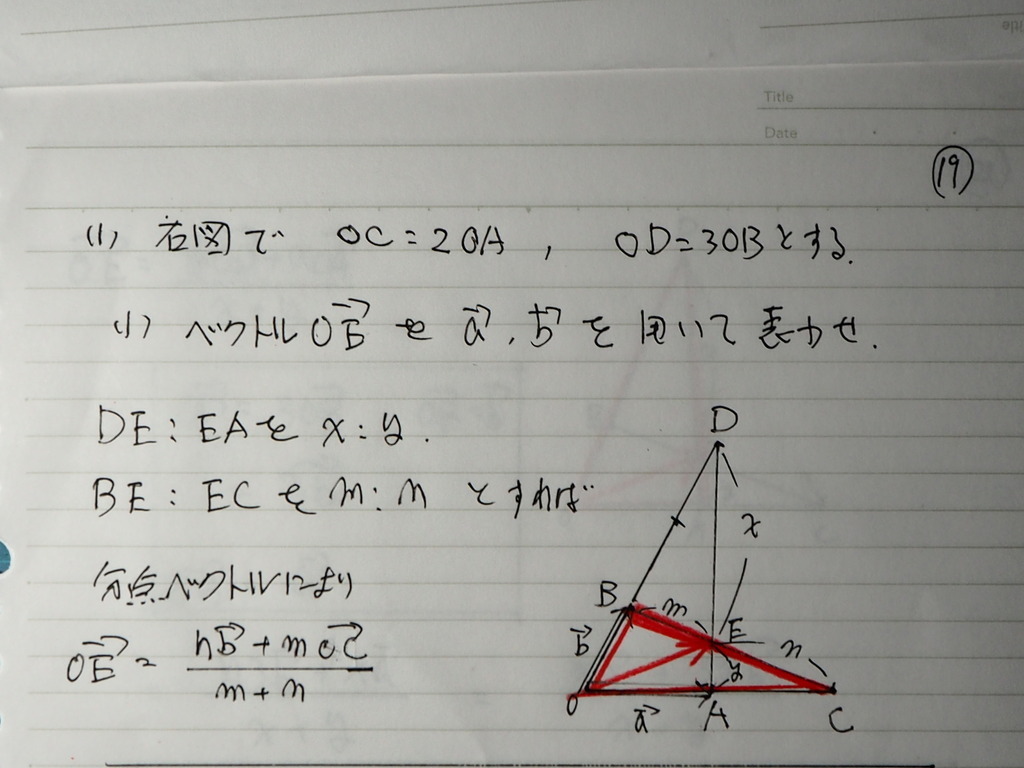 Title
Date
⑲
(1) 右図で OC=2OA, OD=3OBとする.
(1) ベクトルOE→を a→, b→を用いて表わせ.
DE:EAを x:y.
BE:ECを m:n とすれば
分点ベクトルにより
OE→ = nb→+mOC→ / m+n
D
x
B
m
E
b→
n
y
O
a→
A
C